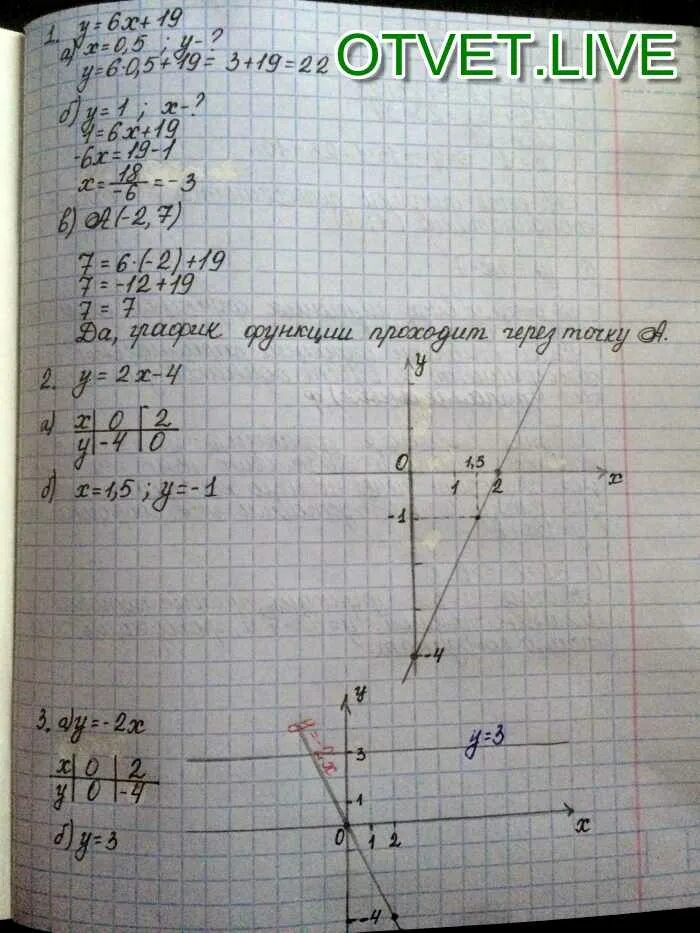 OTVET.LIVE
1. y=6x+19
а) x=0,5 ; y-?
y=6·0,5+19= 3+19=22
б) y=1 ; x-?
1=6x+19
-6x=19-1
x=18/-6=-3
в) A(-2,7)
7=6·(-2)+19
7=-12+19
7=7
Да, график функции проходит через точку A.
2. y=2x-4
а) x | 0 | 2
y | -4 | 0
б) x=1,5 ; y=-1
y
0 1 1,5 2 x
-1
-4
3. а) y=-2x
x | 0 | 2
y | 0 | -4
б) y=3
y
y=-2x
y=3
3
1
0 1 2 x
-4